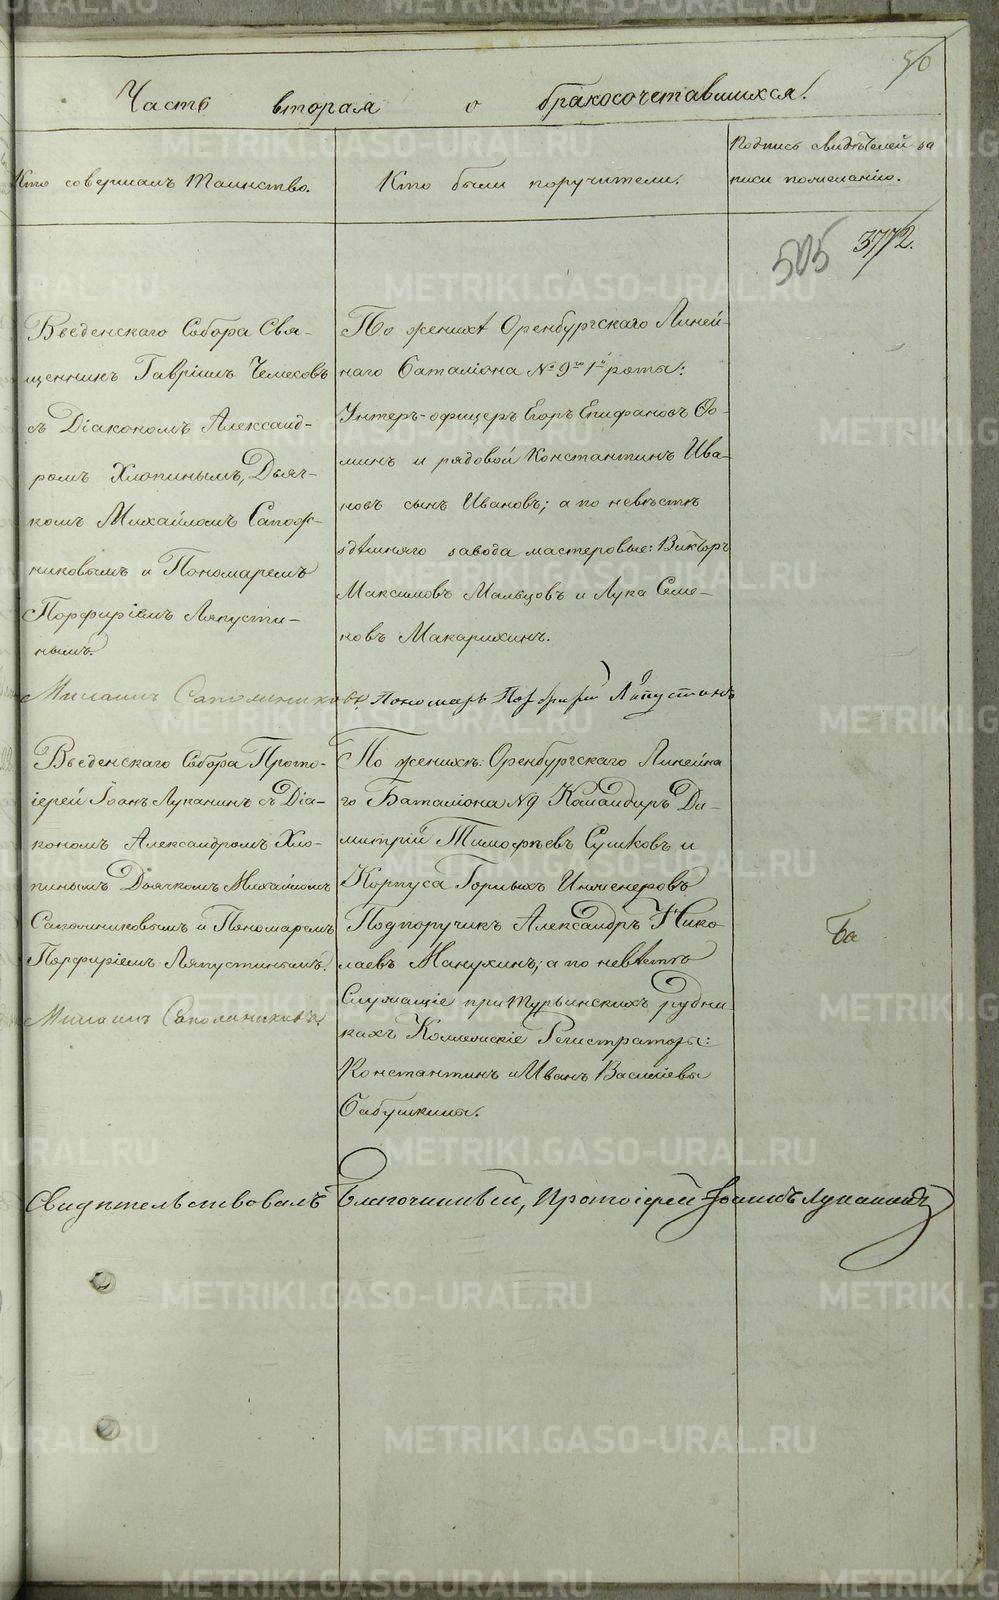 50
Часть вторая о бракосочетавшихся.
Кто совершалъ Таинство.
Кто были поручители.
Подпись свидѣтелей за
писи по желанію.
505 3772.
Введенскаго Собора Свя-
щенникъ Гавріилъ Чемесовъ
съ Діакономъ Александ-
ромъ Хлопинымъ, Дьяч-
комъ Михайломъ Сапож-
никовымъ и Пономаремъ
Порфиріемъ Ляпусти-
нымъ.
По женихѣ Оренбургскаго Линей-
наго баталіона № 9го 1й роты:
Унтеръ-офицеръ Егоръ Епифановъ Ѳо-
минъ и рядовой Константинъ Ива-
новъ сынъ Ивановъ; а по невѣстѣ
здѣшняго завода мастеровые: Викторъ
Максимовъ Мальцовъ и Лука Семе-
новъ Макарихинъ.
Михаилъ Сапожниковъ, Пономарь Порфирій Ляпустинъ
Введенскаго Собора Прото-
іерей Іоанъ Луканинъ съ Діа-
кономъ Александромъ Хло-
пинымъ Дьячкомъ Михайломъ
Сапожниковымъ и Пономаремъ
Порфиріемъ Ляпустинымъ.
Михаилъ Сапожниковъ,
По женихѣ: Оренбургскаго Линейна
го Баталіона № 9 Командиръ Ди-
митрій Тимофѣевъ Сушковъ и
Корпуса Горныхъ Инженеровъ
Подпоручикъ Александръ Нико-
лаевъ Манухинъ; а по невѣстѣ
Служащіе при Турьинскихъ рудни
кахъ Коллежскіе Регистраторы:
Константинъ и Иванъ Василіевы
Бабушкины.
Свидѣтельствовалъ Благочинный, Протоіерей Іоаннъ Луканинъ